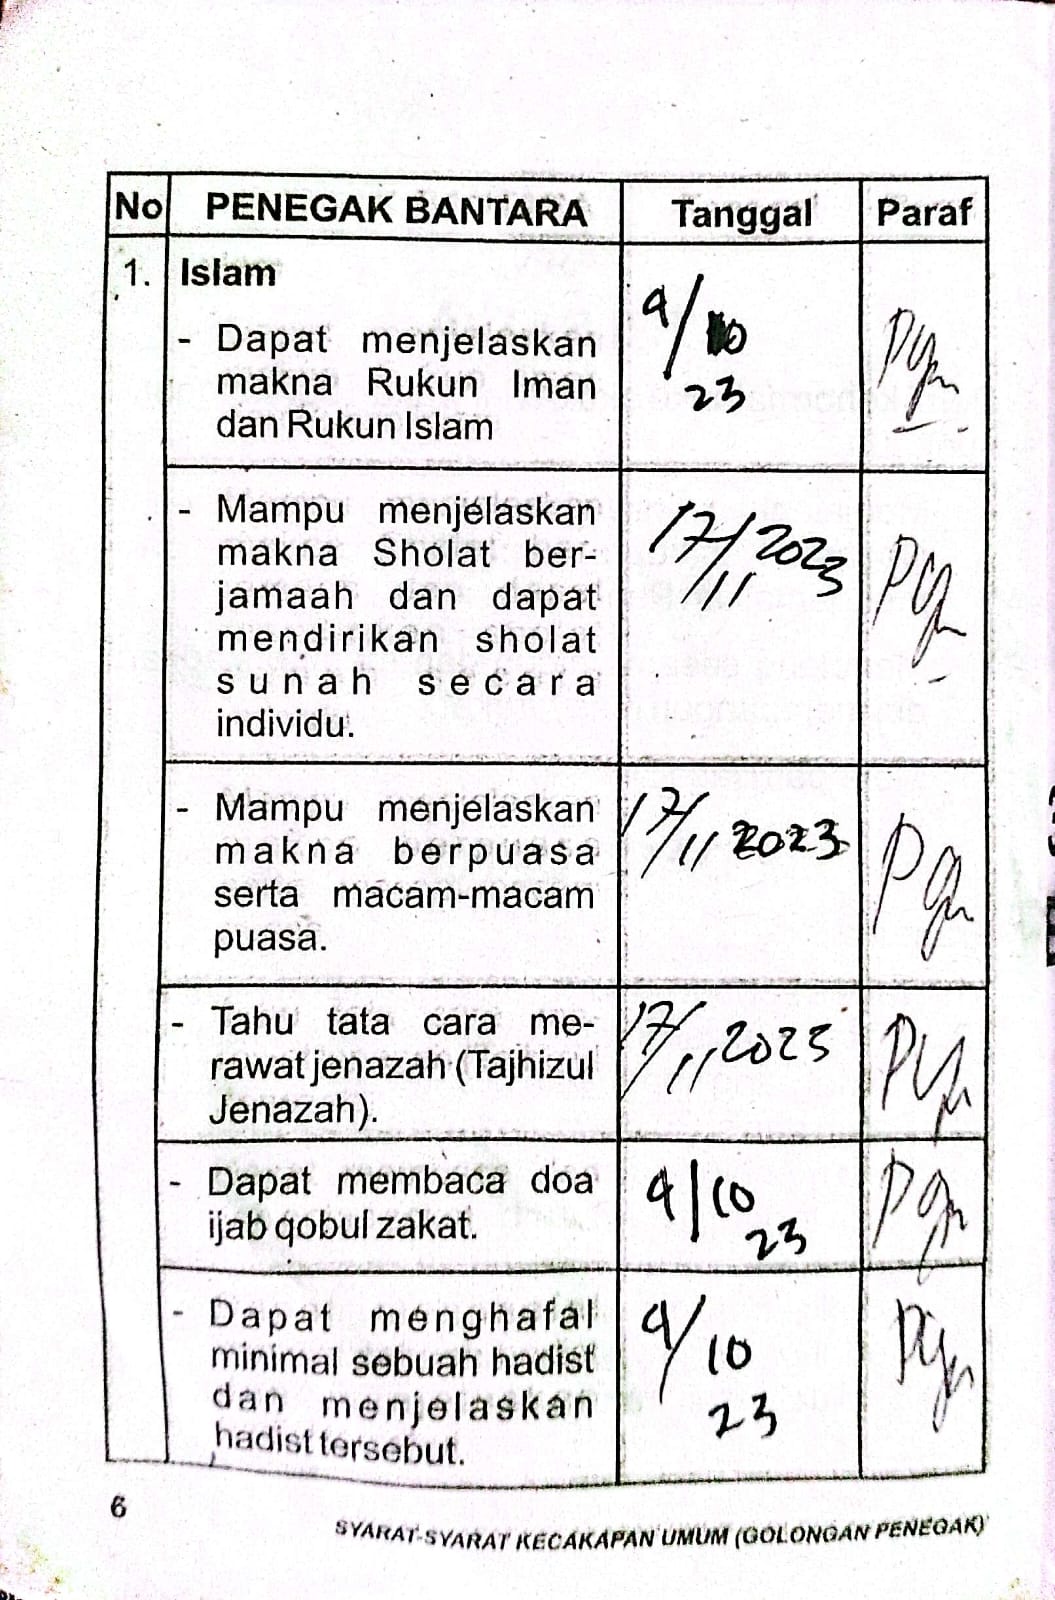 No PENEGAK BANTARA Tanggal Paraf
1. Islam
- Dapat menjelaskan
makna Rukun Iman
dan Rukun Islam
9/10
23
- Mampu menjelaskan
makna Sholat ber-
jamaah dan dapat
mendirikan sholat
sunah secara
individu.
17/11 2023
- Mampu menjelaskan
makna berpuasa
serta macam-macam
puasa.
17/11 2023
- Tahu tata cara me-
rawat jenazah (Tajhizul
Jenazah).
17/11 2023
- Dapat membaca doa
ijab qobul zakat.
9/10
23
- Dapat menghafal
minimal sebuah hadist
dan menjelaskan
hadist tersebut.
9/10
23
6
SYARAT-SYARAT KECAKAPAN UMUM (GOLONGAN PENEGAK)